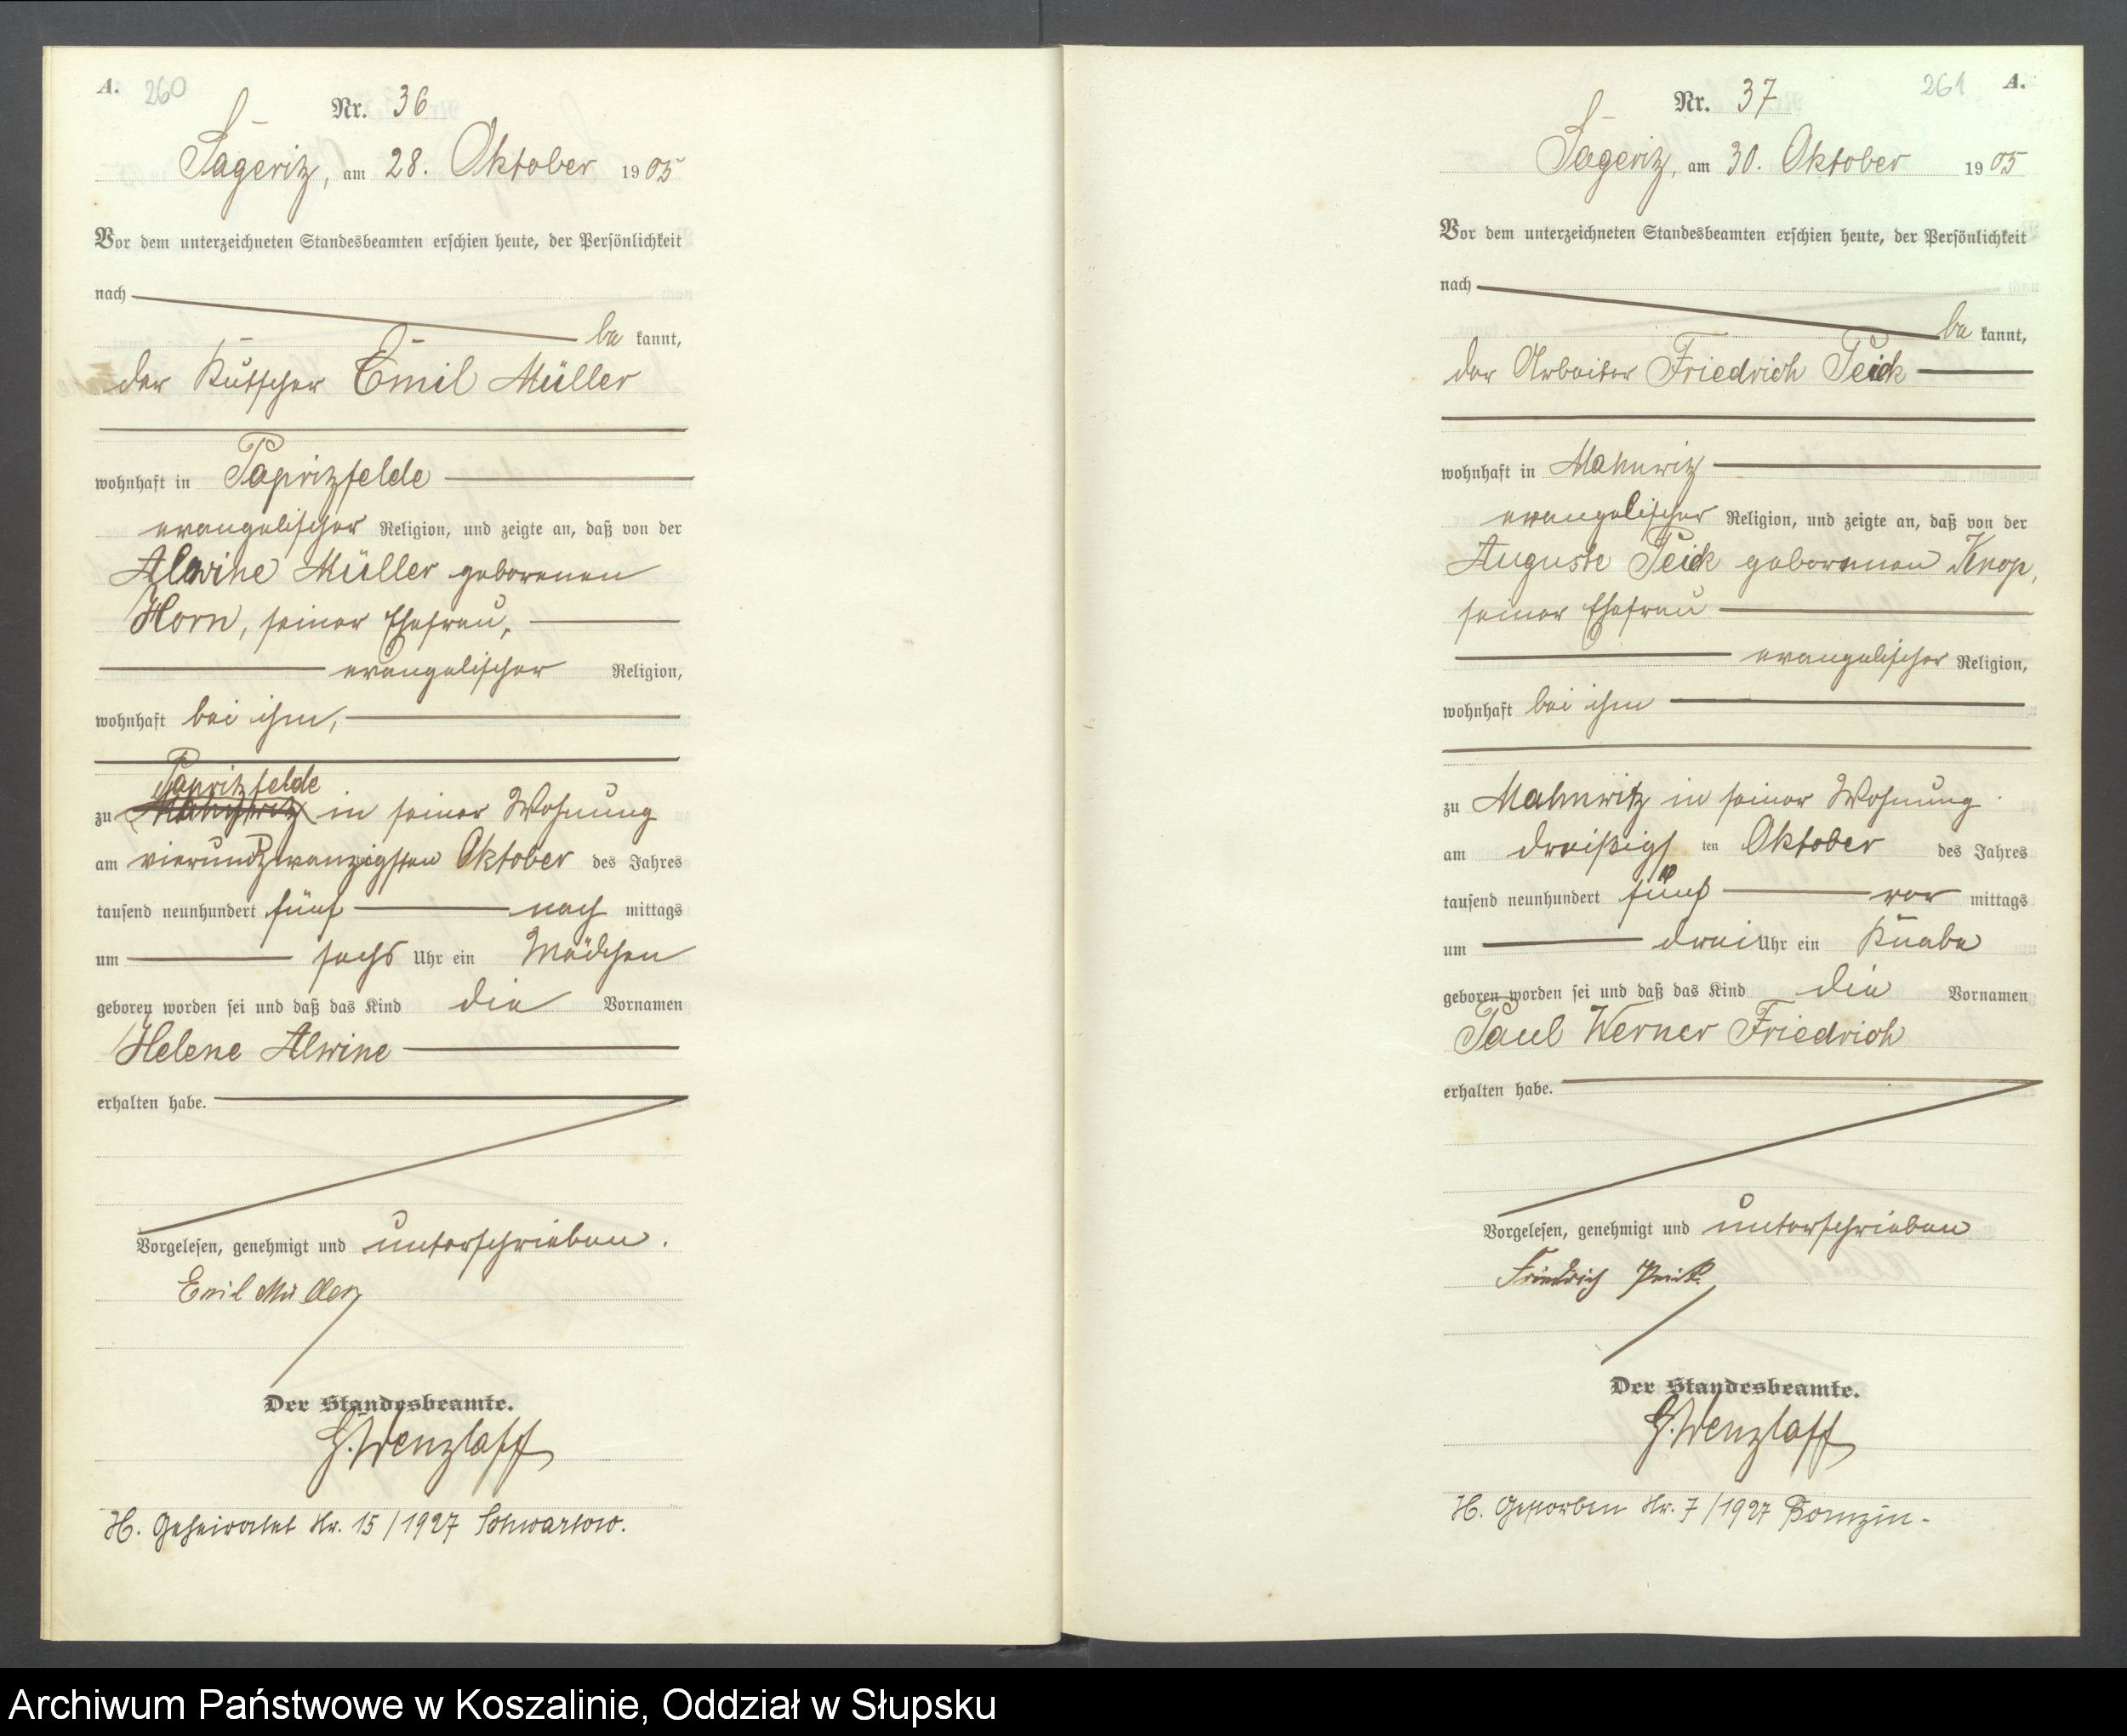 A. 260
Nr. 36
Sageritz, am 28. Oktober 1905
Vor dem unterzeichneten Standesbeamten erschien heute, der Persönlichkeit
nach
be kannt,
der Kutscher Emil Müller
wohnhaft in Papritzfelde
evangelischer Religion, und zeigte an, daß von der
Alwine Müller geborenen
Horn, seiner Ehefrau,
evangelischer Religion,
wohnhaft bei ihm,
Papritzfelde
zu Mahnwitz in seiner Wohnung
am vierundzwanzigsten Oktober des Jahres
tausend neunhundert fünf nach mittags
um sechs Uhr ein Mädchen
geboren worden sei und daß das Kind die Vornamen
Helene Alwine
erhalten habe.
Vorgelesen, genehmigt und unterschrieben.
Emil Müller
Der Standesbeamte.
G. Wenzlaff
H. Geheiratet Nr. 15/1927 Schwartow.
261 A.
Nr. 37
Sageritz, am 30. Oktober 1905
Vor dem unterzeichneten Standesbeamten erschien heute, der Persönlichkeit
nach
be kannt,
der Arbeiter Friedrich Peick
wohnhaft in Mahnwitz
evangelischer Religion, und zeigte an, daß von der
Auguste Peick geborenen Knop,
seiner Ehefrau
evangelischer Religion,
wohnhaft bei ihm
zu Mahnwitz in seiner Wohnung
am dreißigs ten Oktober des Jahres
tausend neunhundert fünf vor mittags
um drei Uhr ein Knabe
geboren worden sei und daß das Kind die Vornamen
Paul Werner Friedrich
erhalten habe.
Vorgelesen, genehmigt und unterschrieben
Friedrich Peick
Der Standesbeamte.
G. Wenzlaff
H. Gestorben Nr. 7/1927 Bornzin.
Archiwum Państwowe w Koszalinie, Oddział w Słupsku